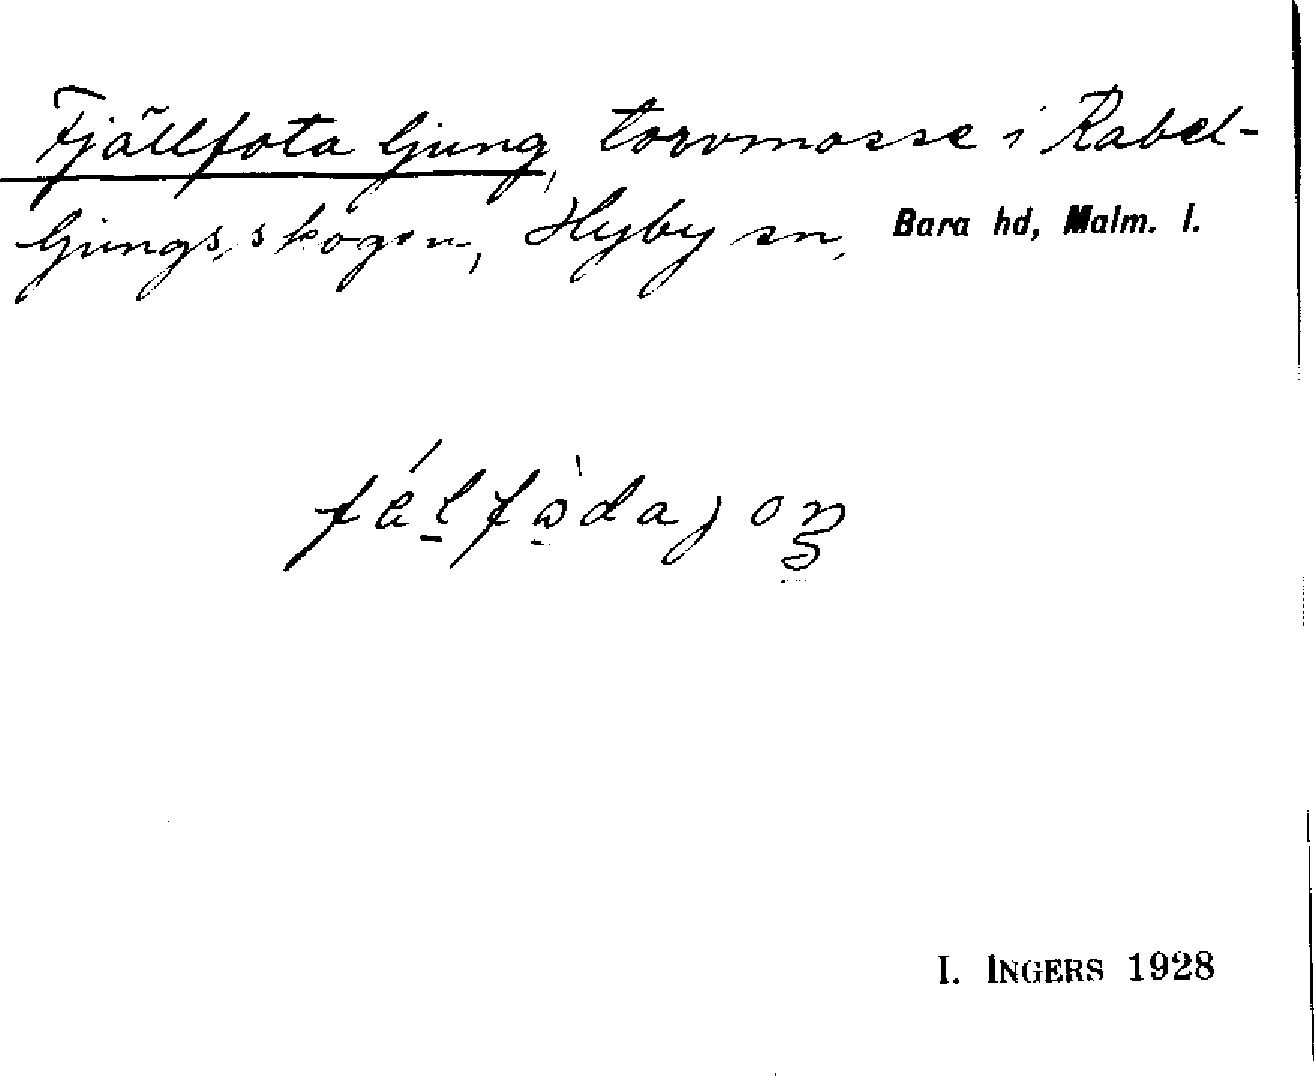 Fjällfota ljung, torvmosse i Rabel-
ljungsskogen, Hyby sn, Bara hd, Malm. l.
I. INGERS 1928